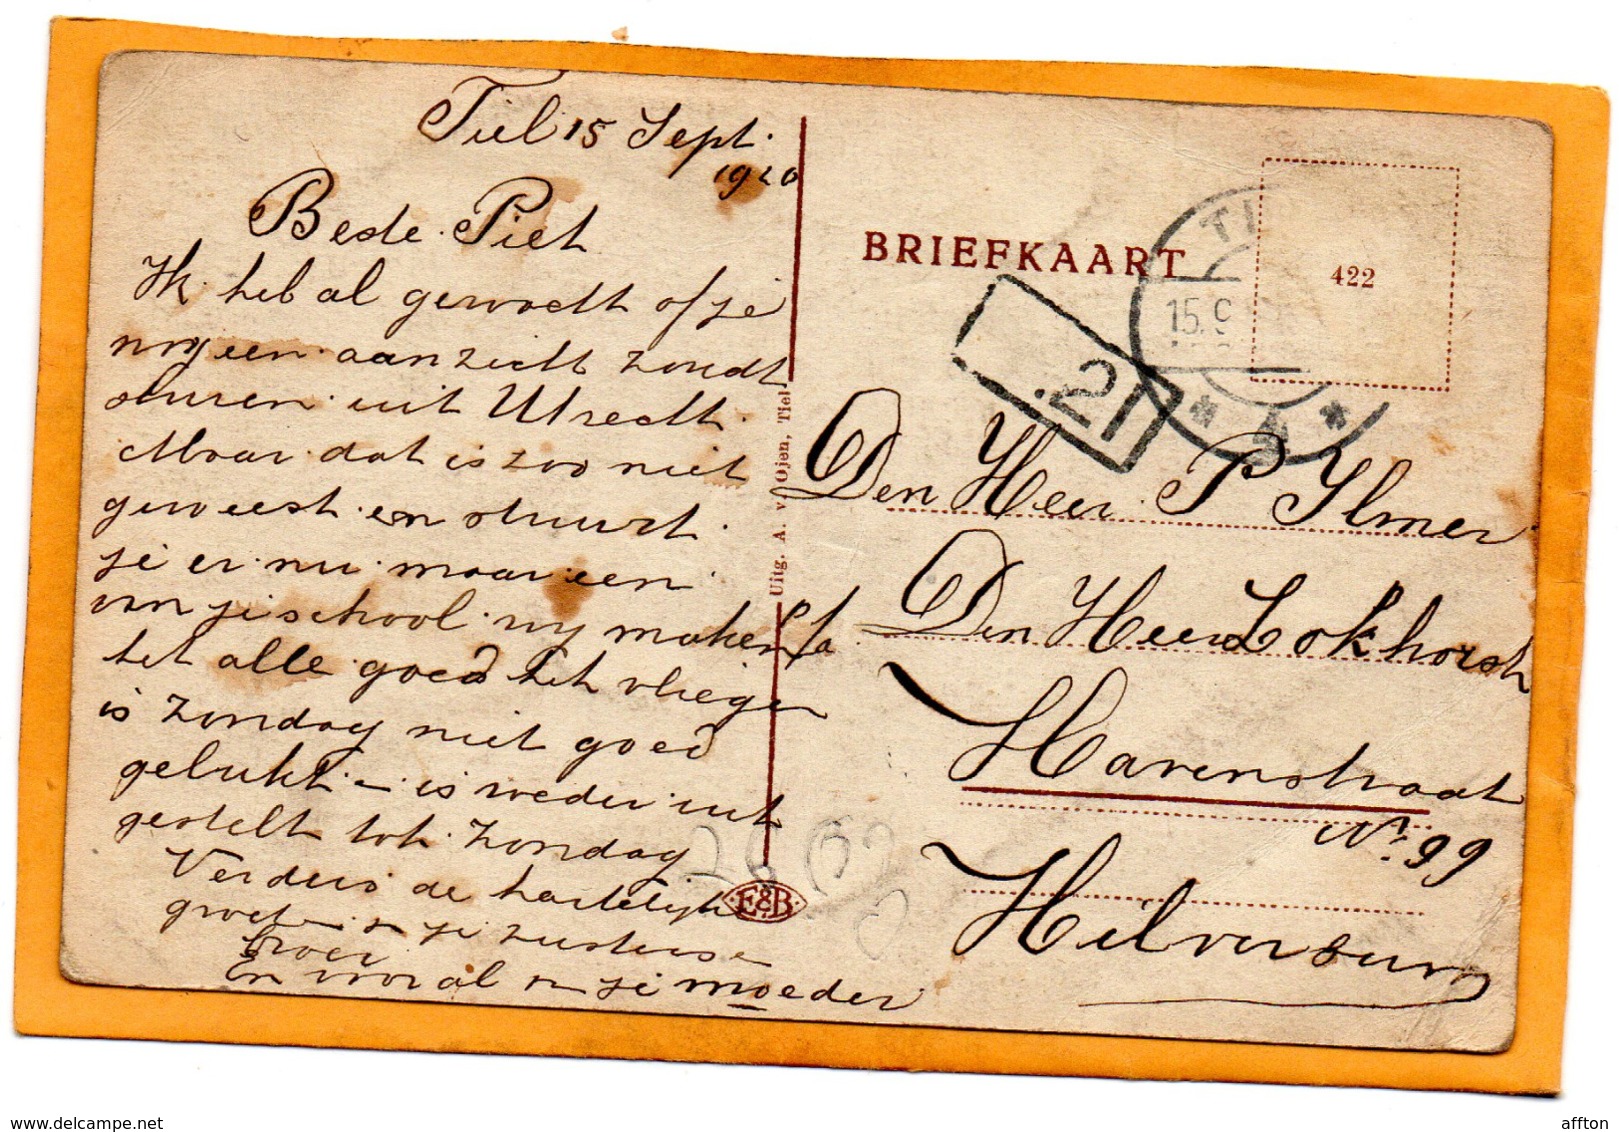 Tiel 15 Sept.
1920
Beste Piet
Ik heb al gewacht of je
nog een aanzicht zoudt
sturen uit Utrecht.
Maar dat is zoo niet
geweest en stuurt
je er nu maar een
van je school wij maken
het alle goed het vliegen
is Zondag niet goed
gelukt en is weder uit
gestelt tot Zondag
Verders de hartelijke
groeten je zusters en
broer
En vooral je moeder
Uitg. A. v. Ojen, Tiel.
E&B
BRIEFKAART
422
TI
15.9
4
.21
Den Heer P Ilmer
p/a Den Heer Lokhorst
Havenstraat
No. 99
Hilversum
www.delcampe.net
affton